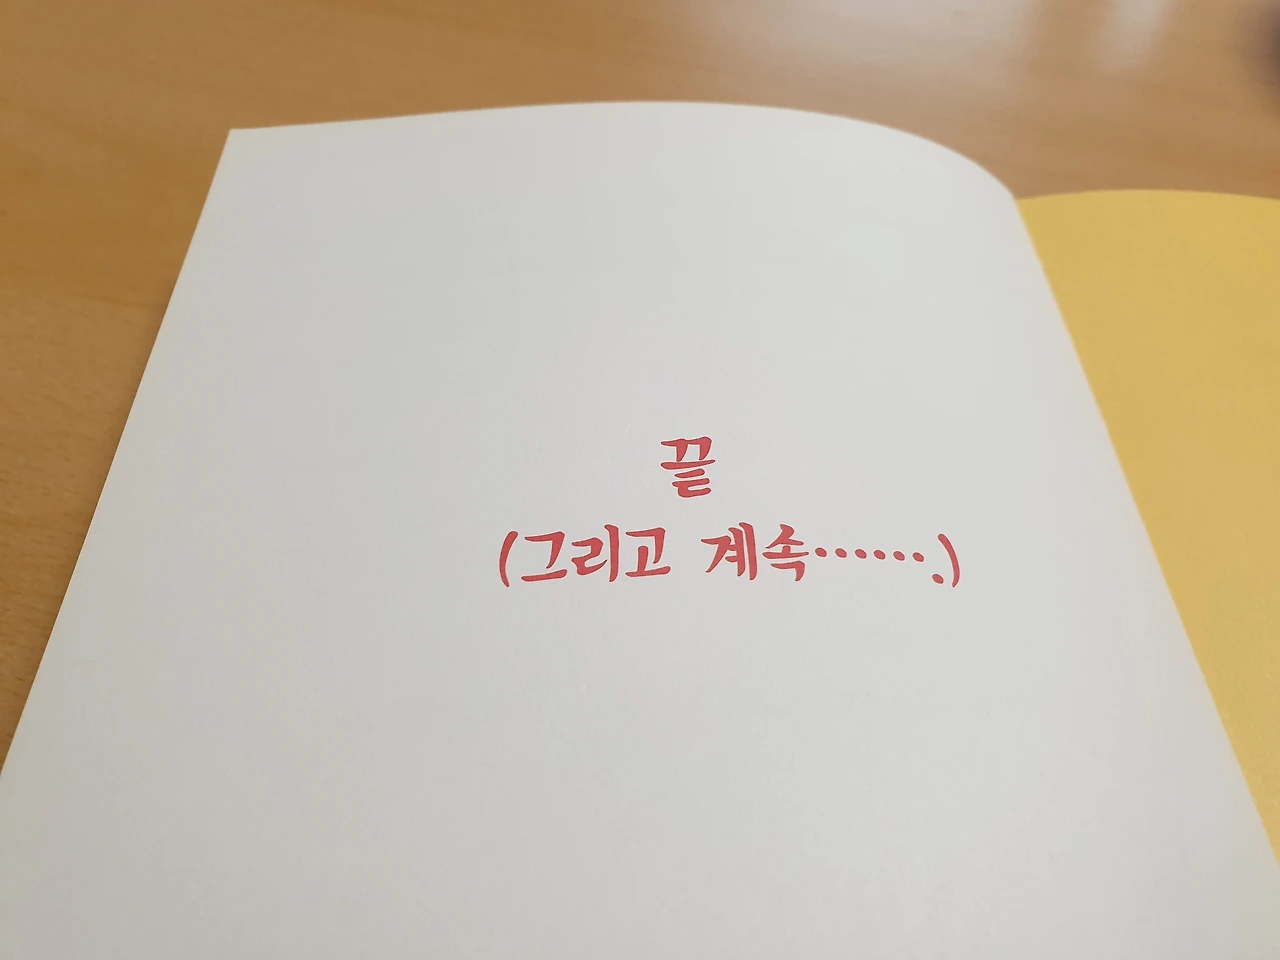 끝
(그리고 계속…….)